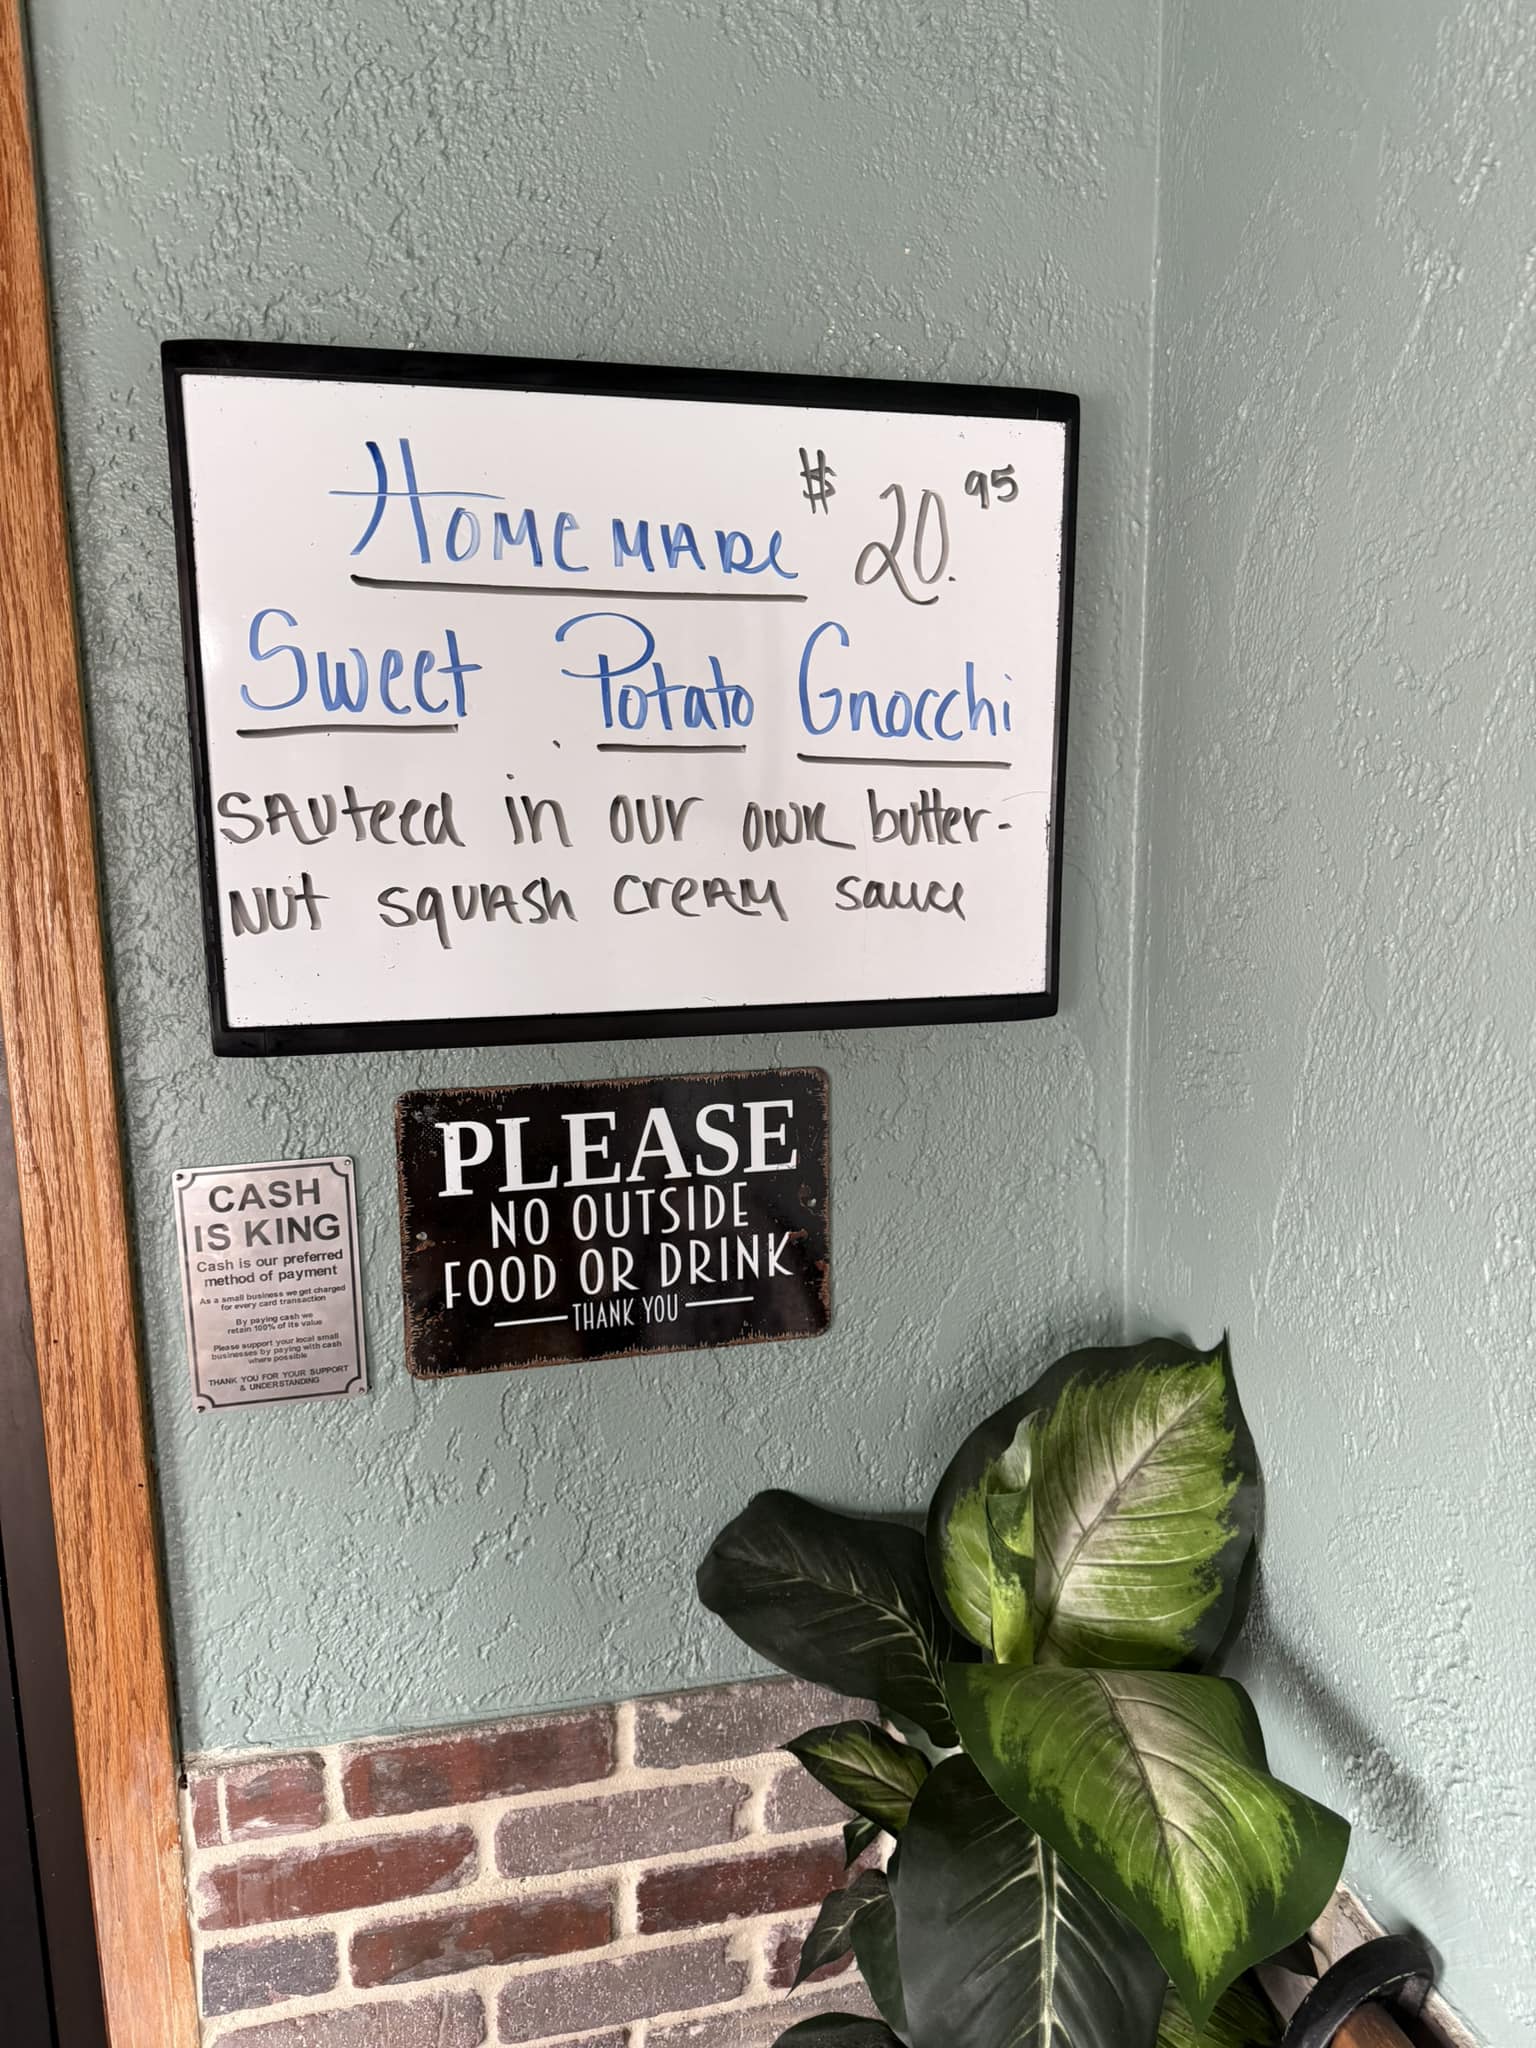 Homemade $20.95
Sweet Potato Gnocchi
sauteed in our own butter-
nut squash cream sauce
PLEASE
NO OUTSIDE
FOOD OR DRINK
THANK YOU
CASH
IS KING
Cash is our preferred
method of payment
As a small business we get charged
for every card transaction
By paying cash we
retain 100% of its value
Please support your local small
businesses by paying with cash
where possible
THANK YOU FOR YOUR SUPPORT
& UNDERSTANDING